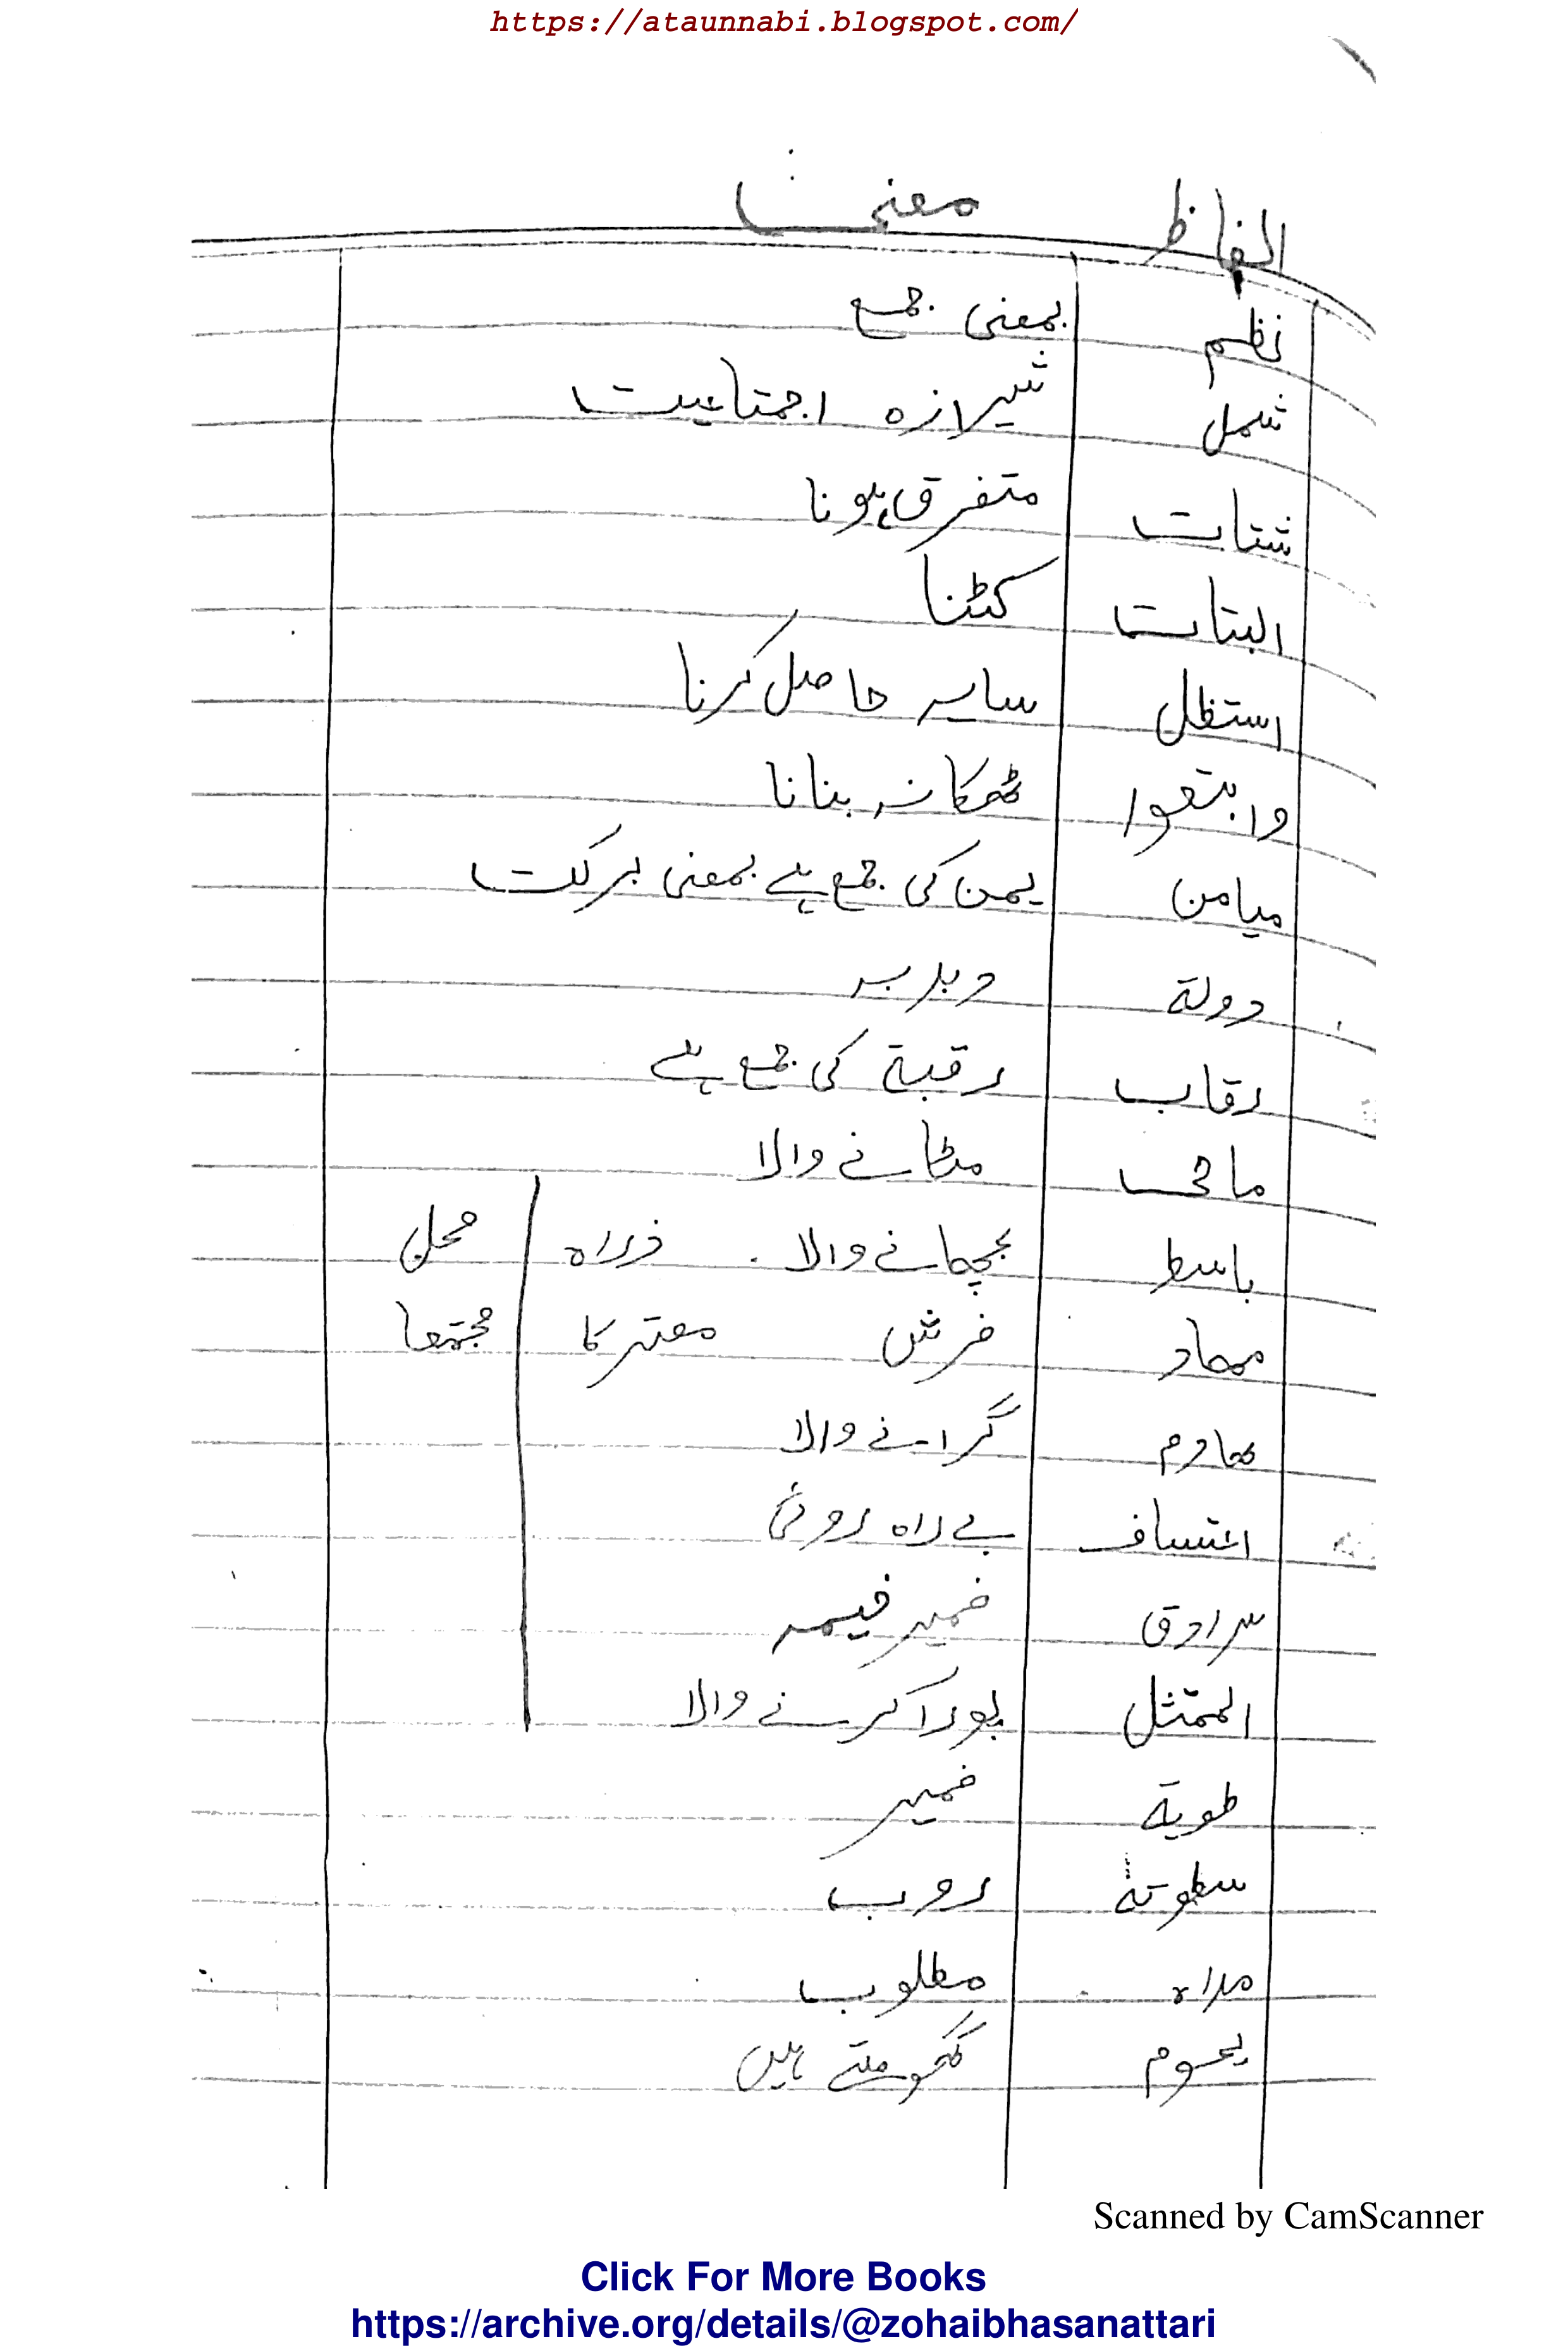 https://ataunnabi.blogspot.com/
الفاظ معنیٰ
نظم بمعنی جمع
شمل شیرازہ اجتماعیت
شتات متفرق ہونا
البتات کٹنا
استظل سایہ حاصل کرنا
وابتقوا ٹھکانہ بنانا
میامن یمن کی جمع ہے بمعنی برکت
دولة دبدبہ
رقاب رقبة کی جمع ہے
ماحی مٹانے والا
باسط بچھانے والا فرراہ محل
مھاد فرش معتر کا مجتمعا
ھادم گرانے والا
اعتساف بے راہ روی
سرادق ضمیر خیمہ
الممتثل پورا کرنے والا
طویة ضمیر
سطوتة روب
مرام مطلوب
یحوم گھومتے ہیں
Scanned by CamScanner
Click For More Books
https://archive.org/details/@zohaibhasanattari